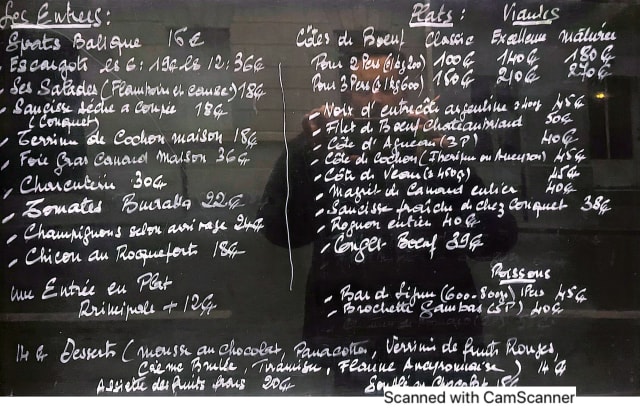 Les Entrées:
Sprats Baltique 15€
Escargots les 6: 19€ les 12: 36€
Les Salades (Flamboire et causses) 18€
Saucisse sèche a coupée 18€
(Conquet)
Terrine de Cochon maison 18€
Foie Gras Canard maison 36€
Charcuterie 30€
Tomates Buratta 22€
Champignons selon arrivage 24€
Chicon au Roqueforts 18€
une Entrée en Plat
Principale + 12€
Plats: Viandes
Côtes de Boeuf Classic Excellence maturée
Pour 2 Pers (1kg200) 100€ 140€ 180€
Pour 3 Pers (1kg600) 150€ 210€ 270€
Noix d'entrecôte argentine 45€
Filet de Boeuf Chateaubriand 50€
Côte d'Agneau (3P) 40€
Côte de Cochon (Iberique ou Aveyron) 45€
Côte de Veau (450g) 45€
Magret de Canard entier 40€
Saucisse fraîche de chez Conquet 38€
Rognon entier 40€
Onglet Boeuf 39€
Poissons
Bar de ligne (600-800g) 1Pers 45€
Brochette Gambas (5P) 40€
14€ Desserts (mousse au chocolat, Panacotta, Verrine de fruits Rouges,
Crème Brulée, Tiramisu, Flaune Aveyronnaise) 14€
Assiette des fruits frais 20€ Soufflé au Chocolat 18€
Scanned with CamScanner